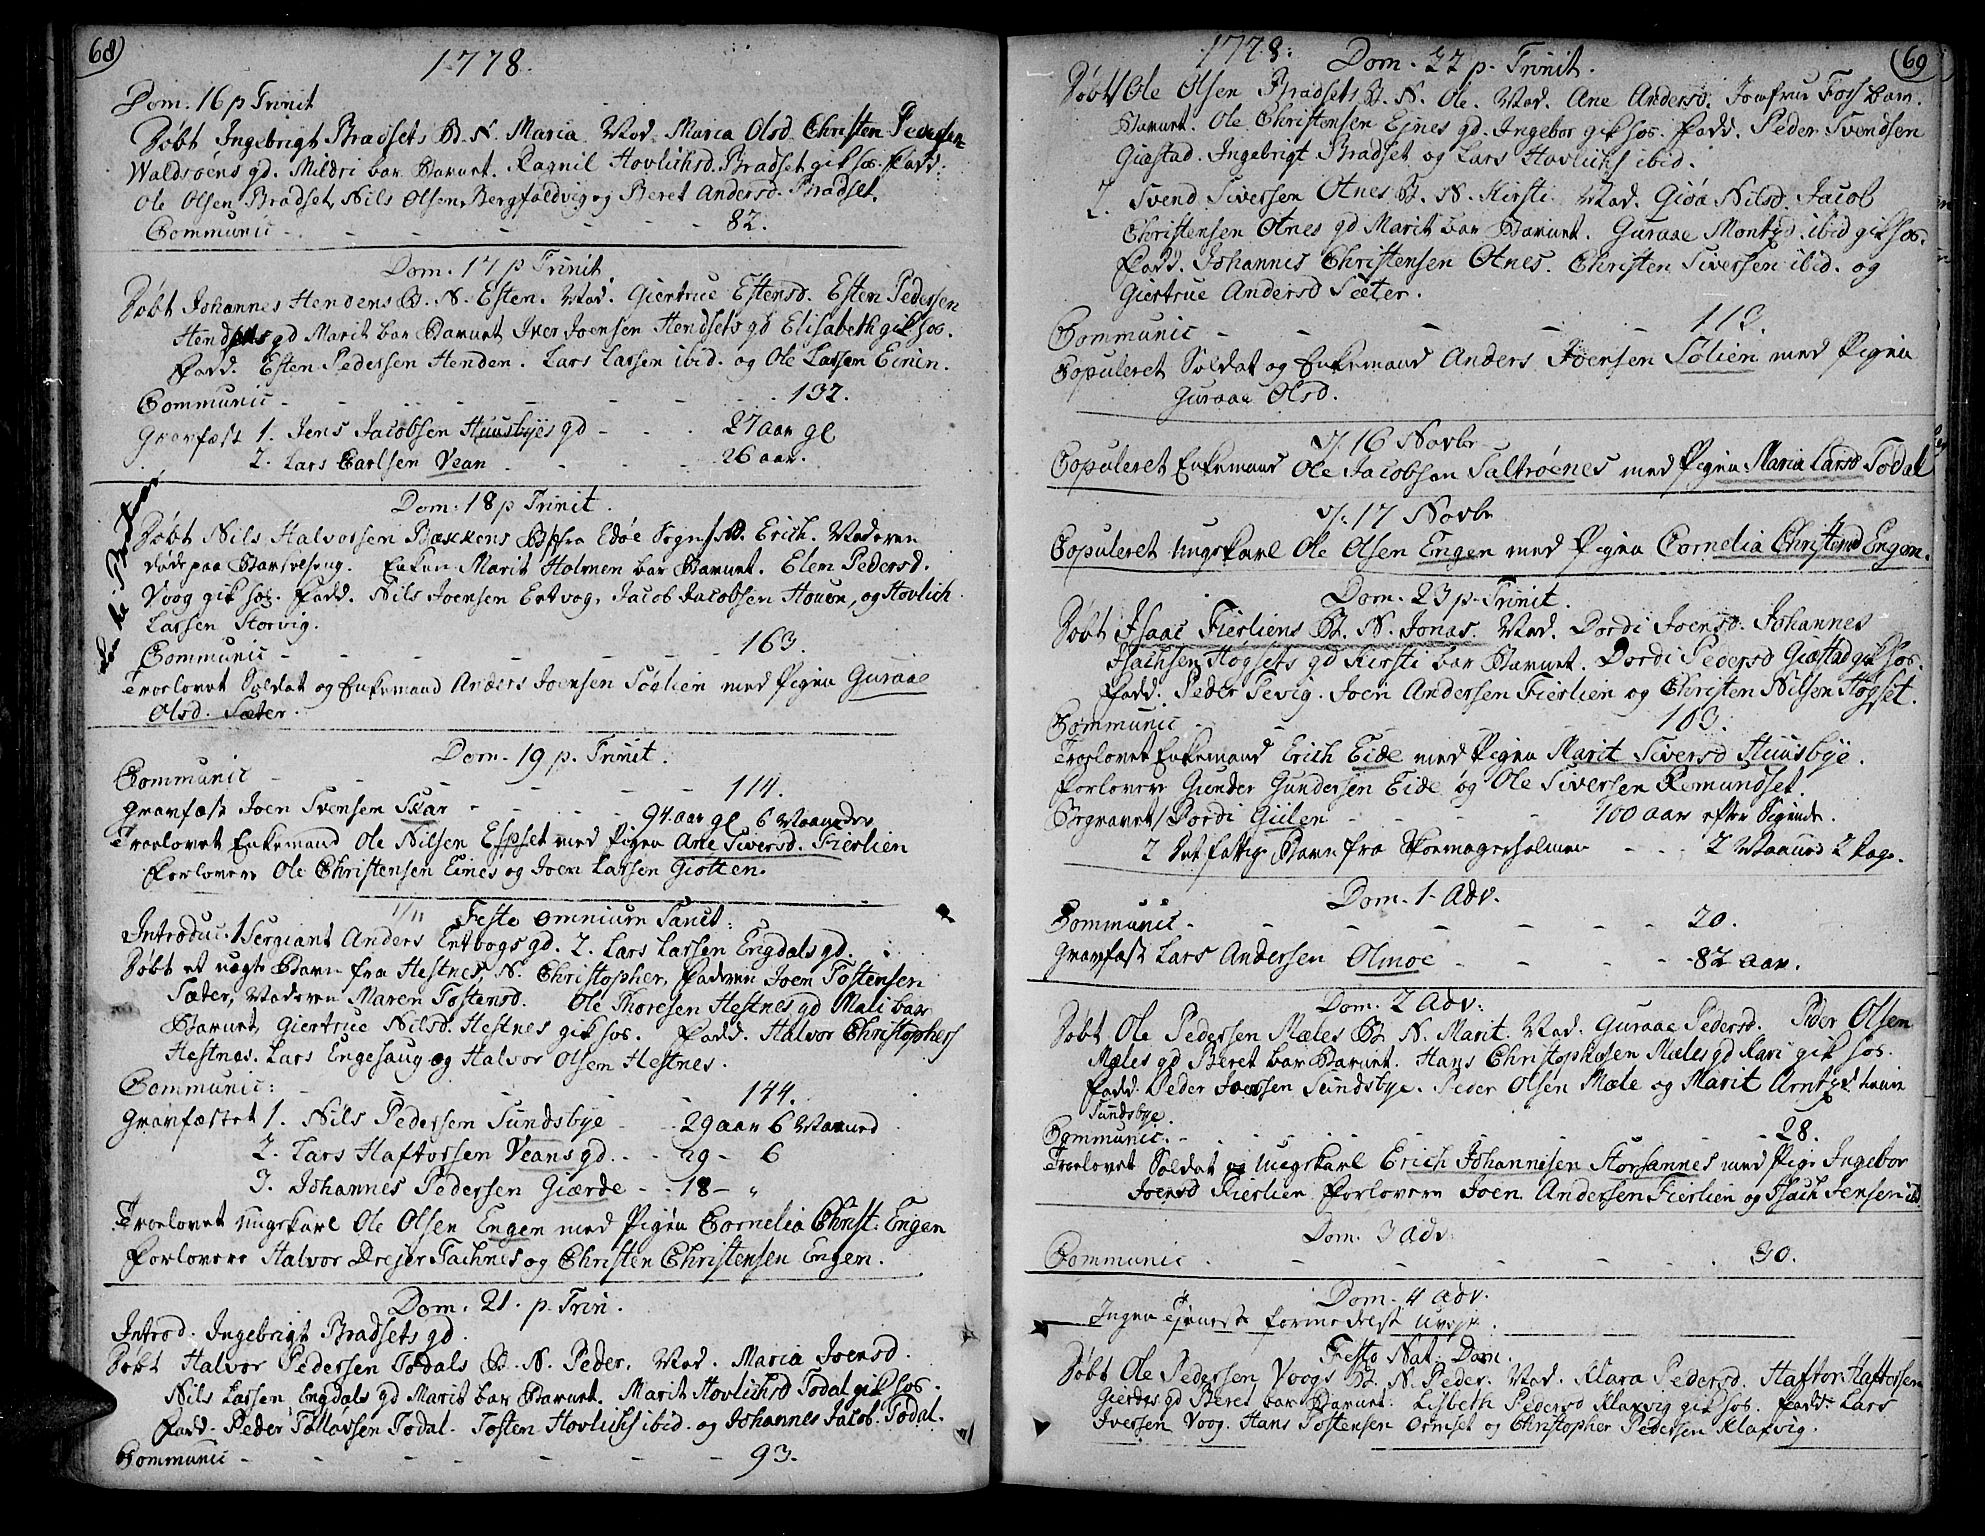 68
1778.
Dom. 16 p Trinit
Døbt Ingebrigt Bradsets B. N. Maria. Mod. Maria Olsd. Christen Pedersen
Waldsøens gd. Mildri bar Barnet. Ragnil Hovlichsd. Bradset gik hos. Fadd:
Ole Olsen Bradset, Nils Olsen Bergfaldvig og Beret Andersd. Bradset.
Communic - - - - - 82.
Dom. 17 p Trinit.
Døbt Johannes Hendens B. N. Esten. Mod. Giertrue Estensd. Esten Pedersen
Hendsets gd Marit bar Barnet Iver Joensen Hendsets gd Elisabeth gik hos.
Fadd. Esten Pedersen Henden. Lars Larsen ibid. og Ole Larsen Eirien.
Communic - - - - - 132.
Gravfæst 1. Jens Jacobsen Huusbyes gd - - - 27 aar gl
2. Lars Carlsen Vean - - - - 26 aar.
Dom. 18 p Trinit.
Døbt Nils Halvorsen Bækkens B. fra Edøe Sogn N. Erich. Moderen
døde paa Barselseng. Enken Marit Holmen bar Barnet. Elen Pedersd.
Voog gik hos. Fadd. Nils Joensen Ertvog, Jacob Jacobsen Houen, og Hovlich
Larsen Storvig.
Communic - - - - - 163.
Troelovet Soldat og Enkemand Anders Joensen Søglien med Pigen Guraae
Olsd. Sæter.
Dom. 19 p. Trinit.
Communic - - - - - 114.
Gravfæst Joen Svensen Skar - - - - 94 aar gl 6 Maaneder
Troelovet Enkemand Ole Nilsen Espset med Pigen Ane Siversd. Fierlien
Forlovere Ole Christensen Eines og Joen Larsen Giøtten.
1/11 Festo omnium Sanct:
Introduc. 1 Sergiant Anders Ertvogs gd. 2. Lars Larsen Engdals gd.
Døbt et uægte Barn fra Hestnes N. Christopher, Faderen Joen Tostensen
Sæter, Moderen Maren Tostensd. Ole Thoresen Hestnes gd Mali bar
Barnet, Giertrue Nilsd. Hestnes gik hos. Fadd. Halvor Christophers
Hestnes. Lars Engesaug og Halvor Olsen Hestnes.
Communic: - - - - - 144.
Gravfæstet 1. Nils Pedersen Sundsbye - - 29 aar 6 Maaned
2. Lars Haftorsen Veans gd. - - 29 - 6
3. Johannes Pedersen Giærde - - 18 - "
Troelovet Ungekarl Ole Olsen Engen med Pigen Cornelia Christ: Engen
Forlovere Halvor Drejer Tachnes og Christen Christensen Engen.
Dom. 21. p. Trin.
Introd. Ingebrigt Bradsets gd.
Døbt Halvor Pedersen Todals B. N. Peder. Mod. Maria Joensd.
Nils Larsen Engdals gd Marit bar Barnet. Marit Hovlichsd Todal gik hos.
Fadd. Peder Tollavsen Todal. Tosten Hovlichs ibid. og Johannes Jacob. Todal.
Communic - - - - - 93.
69
1778: Dom. 22 p. Trinit.
Døbt Ole Olsen Bradsets B. N. Ole. Mod. Ane Andersd. Jomfrue Foss bar
Barnet. Ole Christensen Eines gd. Ingebor gik hos. Fadd. Peder Svendsen
Giastad. Ingebrigt Bradset og Lars Hovlichs ibid.
2. Svend Siversen Otnes B. N. Kirsti. Mod. Giøa Nilsd. Jacob
Christensen Otnes gd Marit bar Barnet. Guraae Montzd. ibid gik hos.
Fadd. Johannes Christensen Otnes. Christen Siversen ibid. og
Giertrue Andersd Sæter.
Communic - - - - - 113.
Copuleret Soldat og Enkemand Anders Joensen Sølien med Pigen
Guraae Olsd.
d/. 16 Novbr
Copuleret Enkemand Ole Jacobsen Saltrøenes med Pigen Maria Larsd Todal
d/. 17 Novbr
Copuleret Ungekarl Ole Olsen Engen med Pigen Cornelia Christensd Engen.
Dom. 23 p. Trinit.
Døbt Isaac Fierliens B. N. Jonas. Mod. Dordi Joensd. Johannes
Isachsen Høgsets gd Kirsti bar Barnet. Dordi Pedersd Giæstad gik hos.
Fadd. Peder Tevig. Joen Andersen Fierlien og Christen Nilsen Høgset.
Communic - - - - 103.
Troelovet Enkemand Erich Eide med Pigen Marit Siversd Huusbye.
Forlovere Gunder Gundersen Eide og Ole Siversen Remundset.
Begravet 1 Dordi Giilen - - - - 100 aar efter Sigende.
2 Det fattige Barn fra Skomagerholmen - - - 2 Maaned 2 Dage.
Dom. 1. Adv.
Communic - - - - - 20.
Gravfæst Lars Andersen Olmoe - - - - 82 aar.
Dom. 2 Adv:
Døbt Ole Pedersen Mæles B. N. Marit. Mod. Guraae Pedersd. Peder Olsen
Mæles gd Beret bar Barnet. Hans Christophersen Mæles gd Kari gik hos.
Fadd. Peder Joensen Sundsbye. Peder Olsen Mæle og Marit Arntzd
Sundsbye.
Communic. - - - - - 28.
Troelovet Soldat og Ungekarl Erich Johannesen Storsannes med Pige Ingebor
Joensd Fierlien Forlovere Joen Andersen Fierlien og Isach Jensen ibd.
Dom. 3 Adv:
Communic - - - - - 30.
Dom. 4 Adv.
Ingen Tjeneste formedelst Uveir.
Festo Nat. Dom.
Døbt Ole Pedersen Voogs B. N. Peder. Mod. Klara Pedersd. Haftor Haftorsen
Gierdes gd Beret bar Barnet. Lisbeth Pedersd Klafvig gik hos. Fadd. Lars
Iversen Voog. Hans Tostensen Ormset og Christopher Pedersen Klafvig.